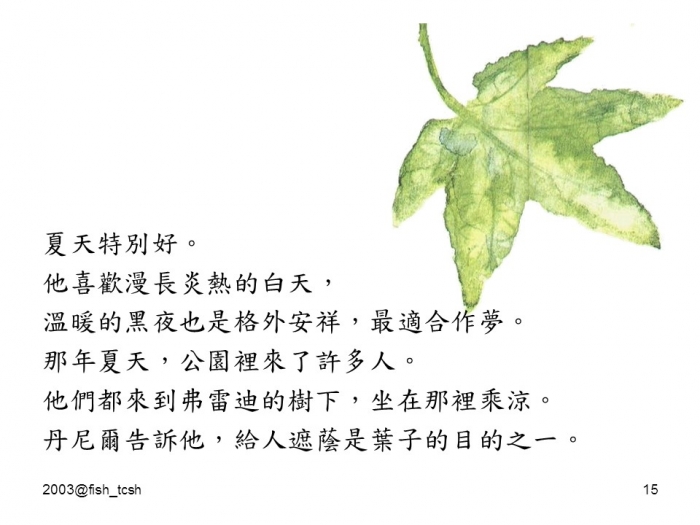 夏天特別好。
他喜歡漫長炎熱的白天，
溫暖的黑夜也是格外安祥，最適合作夢。
那年夏天，公園裡來了許多人。
他們都來到弗雷迪的樹下，坐在那裡乘涼。
丹尼爾告訴他，給人遮蔭是葉子的目的之一。
2003@fish_tcsh
15